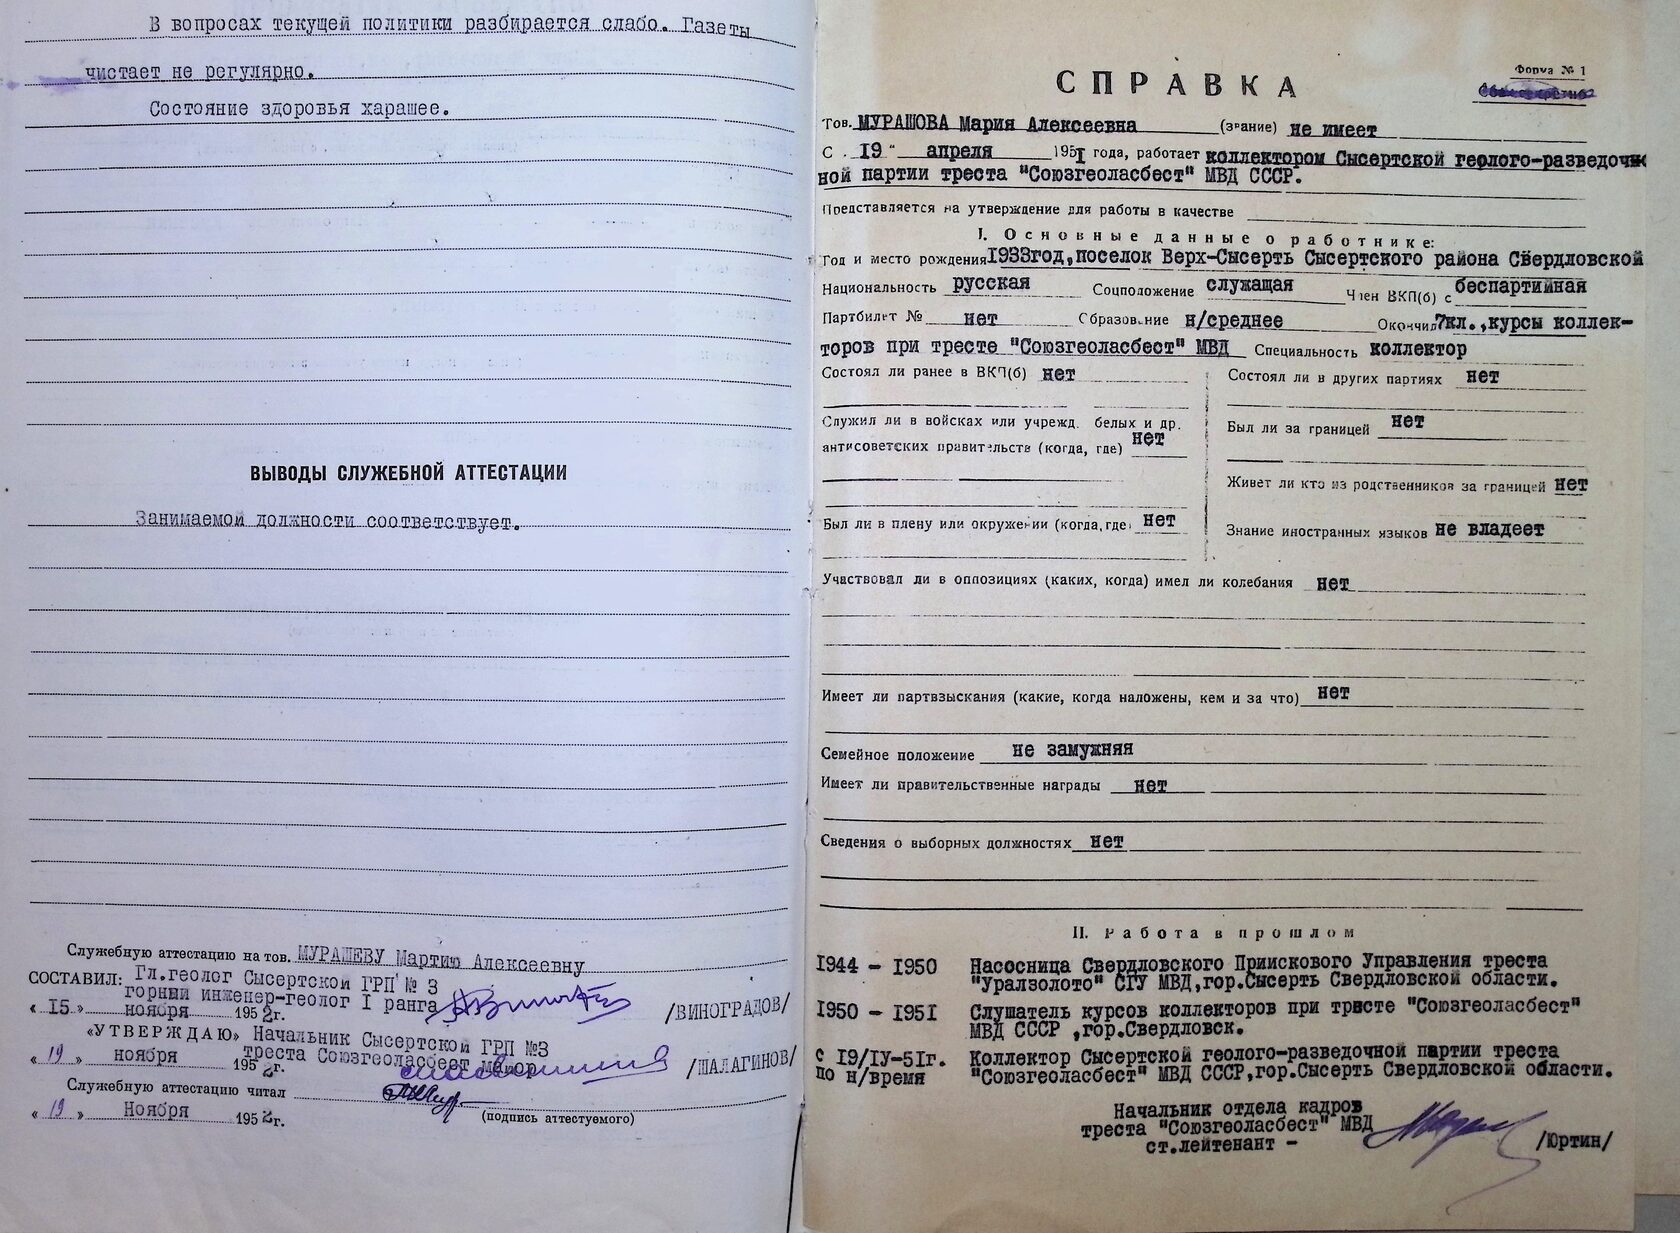 В вопросах текущей политики разбирается слабо. Газеты
чистает не регулярно.
Состояние здоровья харашее.
ВЫВОДЫ СЛУЖЕБНОЙ АТТЕСТАЦИИ
Занимаемой должности соответствует.
Служебную аттестацию на тов. МУРАШЕВУ Мартию Алексеевну
СОСТАВИЛ: Гл.геолог Сысертской ГРП № 3
горний инженер-геолог I ранга
« 15 » ноября 1952г. /ВИНОГРАДОВ/
«УТВЕРЖДАЮ» Начальник Сысертской ГРП №3
треста Союзгеоласбест майор
« 19 » ноября 1952г. /ШАЛАГИНОВ/
Служебную аттестацию читал
« 19 » Ноября 1952г. (подпись аттестуемого)
СПРАВКА
Форма № 1
Тов. МУРАШОВА Мария Алексеевна (звание) не имеет
С „19" апреля 1951 года, работает коллектором Сысертской геолого-разведоч
ной партии треста "Союзгеоласбест" МВД СССР.
Представляется на утверждение для работы в качестве
I. Основные данные о работнике:
Год и место рождения 1933год,поселок Верх-Сысерть Сысертского района Свердловской
Национальность русская Соцположение служащая Член ВКП(б) с беспартийная
Партбилет № нет Образование н/среднее Окончил 7кл.,курсы коллек-
торов при тресте "Союзгеоласбест" МВД Специальность коллектор
Состоял ли ранее в ВКП(б) нет
Состоял ли в других партиях нет
Служил ли в войсках или учрежд. белых и др.
антисоветских правительств (когда, где) нет
Был ли за границей нет
Живет ли кто из родственников за границей нет
Был ли в плену или окружении (когда, где) нет
Знание иностранных языков не владеет
Участвовал ли в оппозициях (каких, когда) имел ли колебания нет
Имеет ли партвзыскания (какие, когда наложены, кем и за что) нет
Семейное положение не замужняя
Имеет ли правительственные награды нет
Сведения о выборных должностях нет
II. Работа в прошлом
1944 - 1950 Насосница Свердловского Приискового Управления треста
"Уралзолото" СГУ МВД,гор.Сысерть Свердловской области.
1950 - 1951 Слушатель курсов коллекторов при тресте "Союзгеоласбест"
МВД СССР ,гор.Свердловск.
с 19/IУ-51г. Коллектор Сысертской геолого-разведочной партии треста
по н/время "Союзгеоласбест" МВД СССР,гор.Сысерть Свердловской области.
Начальник отдела кадров
треста "Союзгеоласбест" МВД
ст.лейтенант - /ЮРТИН/